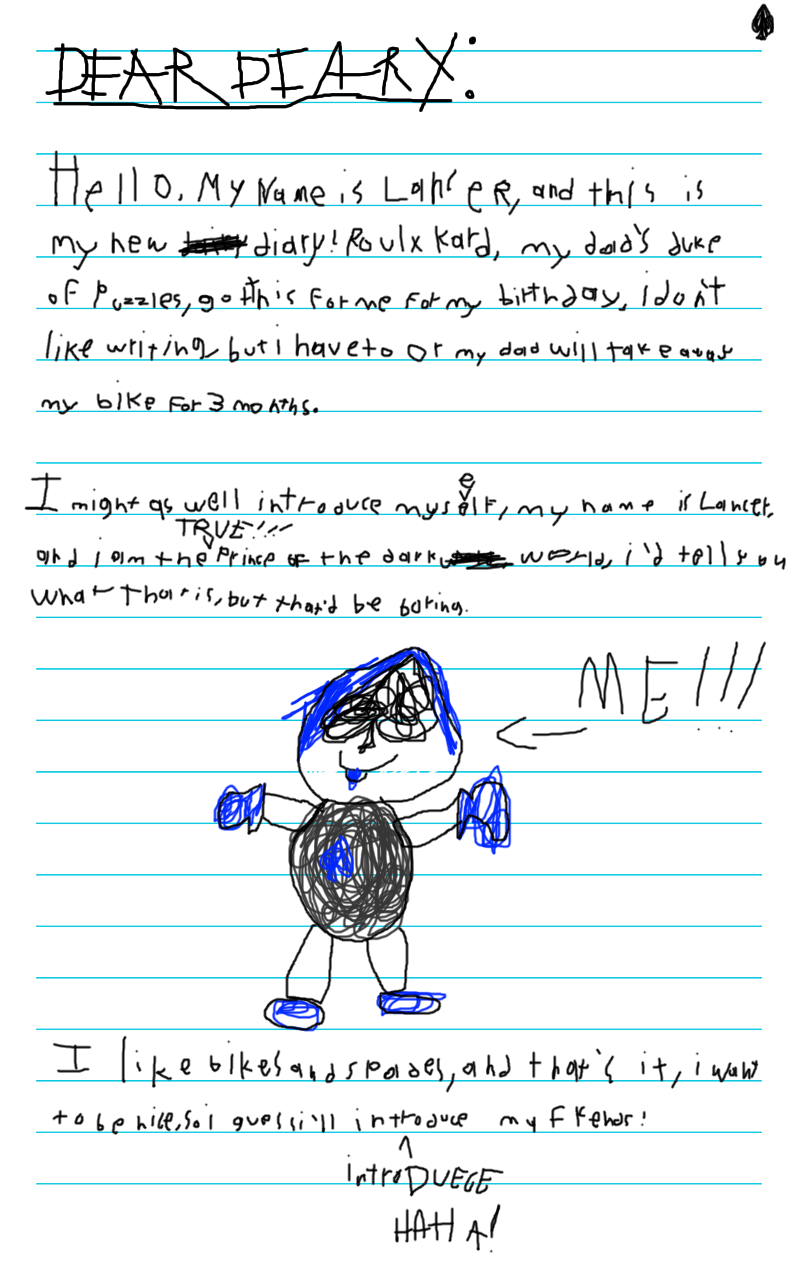 DEAR DIARY:
Hello, My Name is Lancer, and this is
my new diary! Roulx Kard, my dad's duke
of Puzzles, got this for me for my birthday, i don't
like writing, but i have to or my dad will take away
my bike for 3 months.
I might as well introduce myself, my name is Lancer,
and i am the TRUE!!! Prince of the dark world, i'd tell you
what that is, but that'd be boring.
ME!!!
I like bikes and spades, and that's it, i want
to be nice, so i guess i'll introduce my
introDUECE
HAHA!